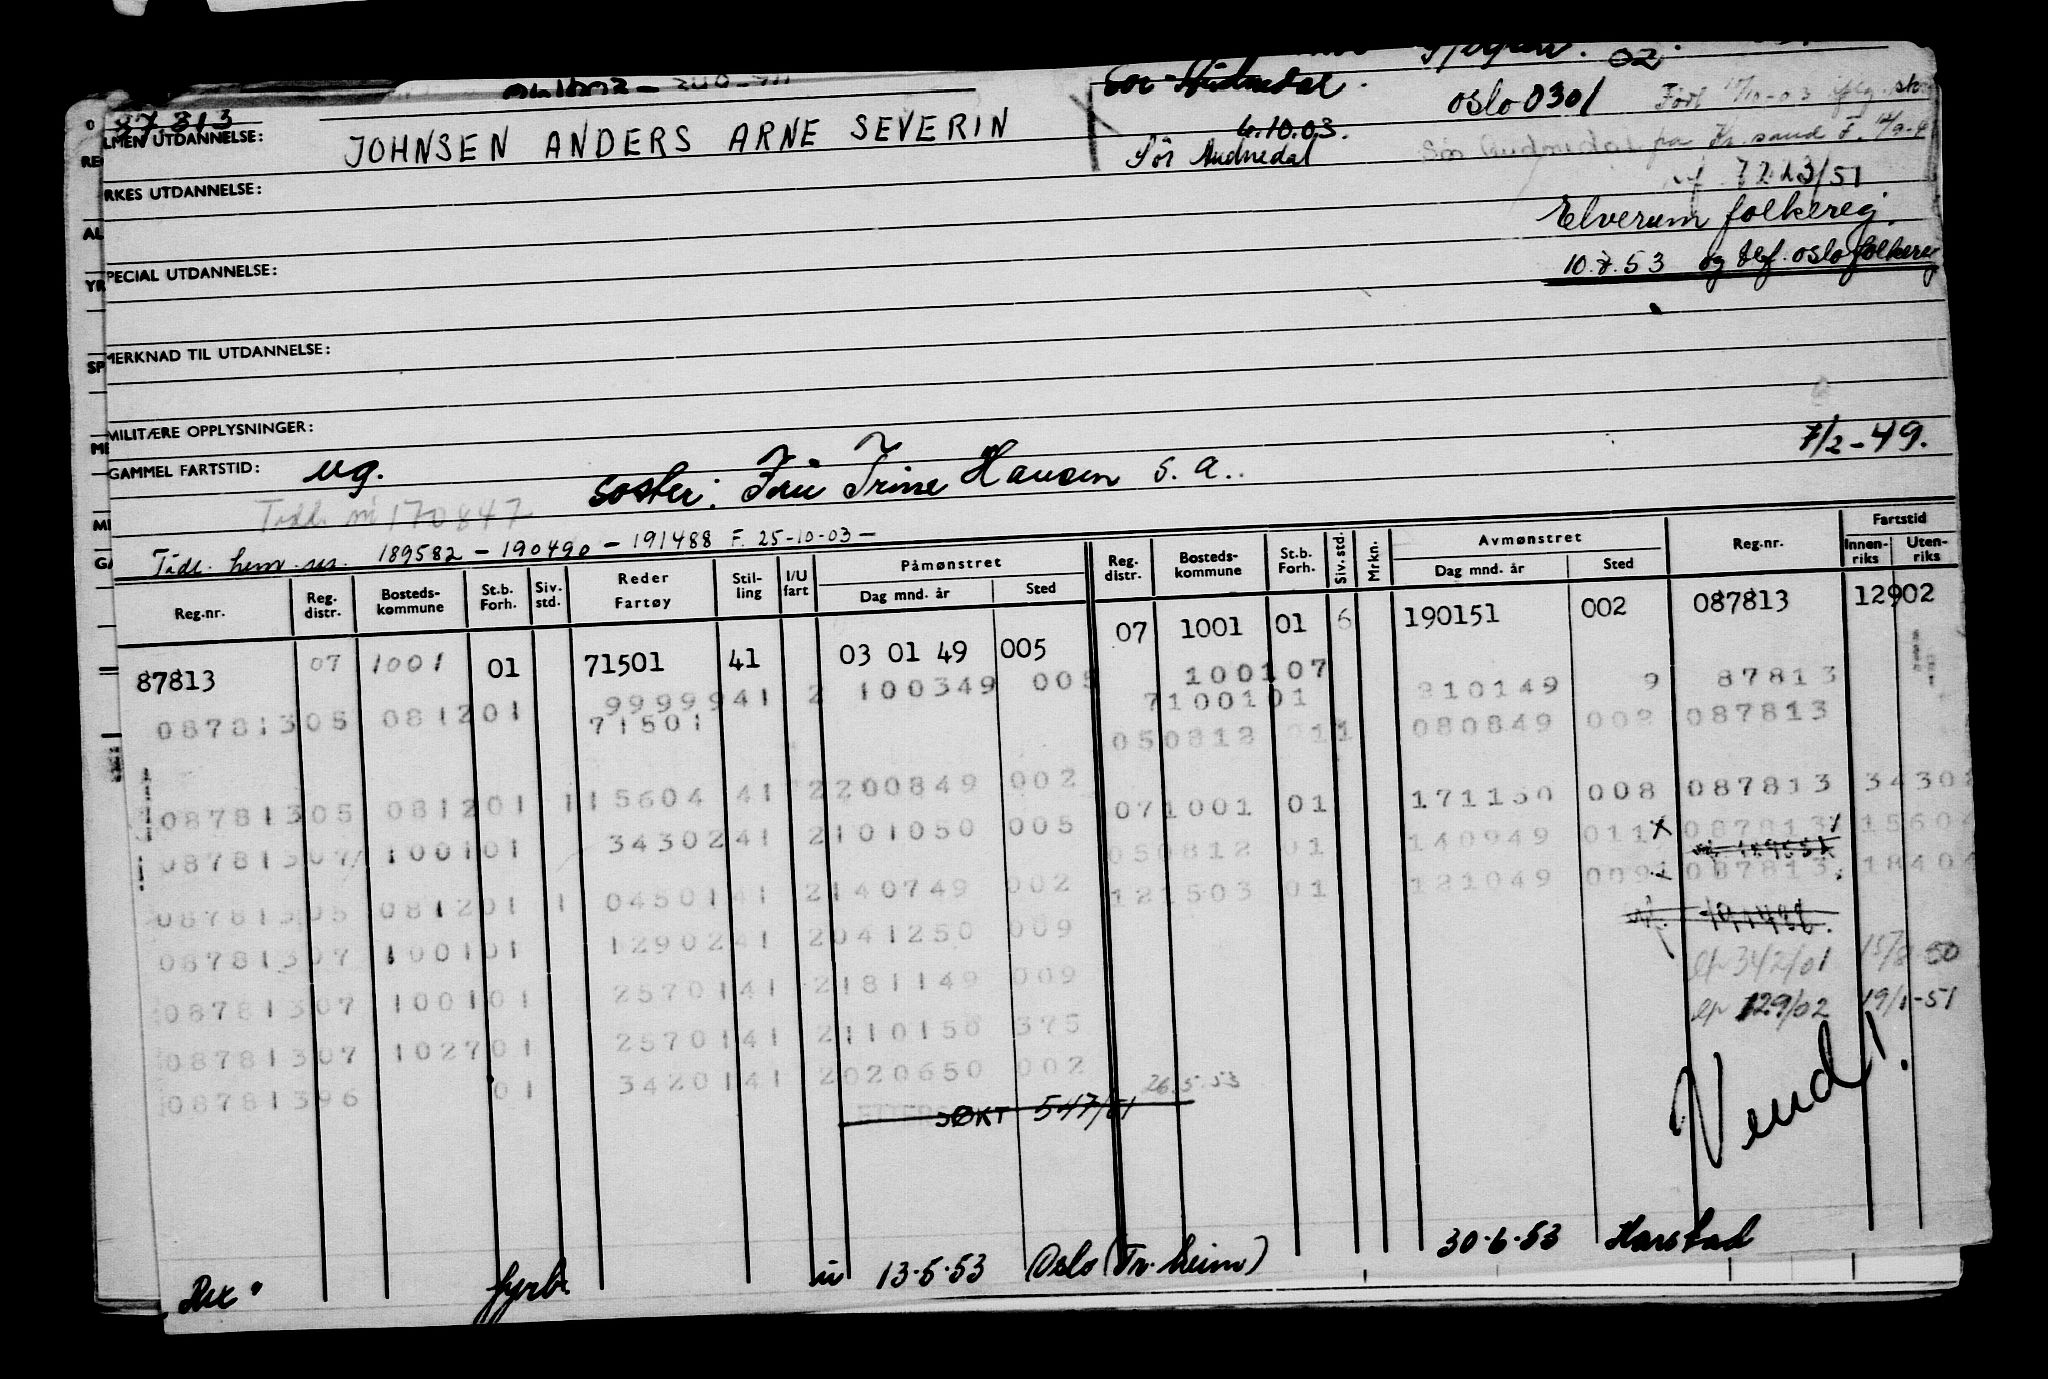 87 813
LMEN UTDANNELSE:
JOHNSEN ANDERS ARNE SEVERIN
Sør-Audnedal.
02.
oslo 0301
4.10.03.
Sör Audnedal
Sör Audnedal fra Kr.sand F.
7223/51
RKES UTDANNELSE:
Elverum folkereg.
10.7.53 og tlf. oslo folkereg
PECIAL UTDANNELSE:
MERKNAD TIL UTDANNELSE:
MILITÆRE OPPLYSNINGER:
7/2-49.
GAMMEL FARTSTID: ug.
søster: Fru Trine Hansen S. A..
Tidl. nr 170847
Tidl. hem. nr. 189582 - 190490 - 191488 F. 25-10-03 -
Reg.nr. Reg. distr. Bosteds-kommune St.b. Forh. Siv. std. Reder Fartøy Stil-ling I/U fart Påmønstret Dag mnd. år Sted Reg. distr. Bosteds-kommune St.b. Forh. Siv. std. Mrkn. Avmønstret Dag mnd. år Sted Reg.nr. Fartstid Innen-riks Uten-riks
87813 07 1001 01 71501 41 03 01 49 005 07 1001 01 6 190151 002 087813 12902
9999941 2 100349 005 100107 210149 9 87813
08781305 081201 71501 7100101
050812 011 080849 002 087813
08781305 081201 1 15604 41 2200849 002 071001 01 171150 008 087813 34302
08781307 100101 3430241 2101050 005 050812 01 140949 011 087813 15604
08781305 081201 1 0450141 2140749 002 121503 01 121049 009 087813 18404
08781307 100101 1290241 2041250 009
08781307 100101 2570141 2181149 009
342/01 15/8-50
08781307 102701 2570141 2110150 375
129/02 19/1-51
08781396 01 3420141 2020650 002
26.5.53
SØKT 547/51
Vend!
Rex fyrb. u 13.5.53 Oslo (Tr.heim) 30.6.53 Harstad